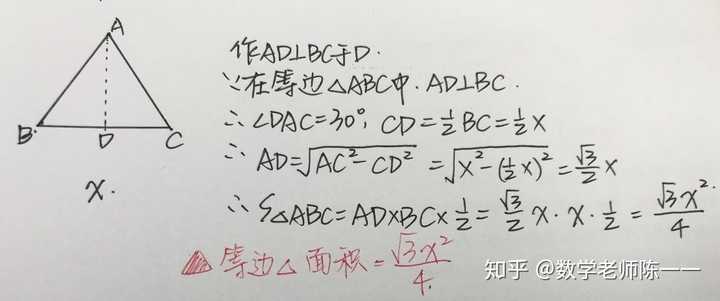 A
B
D
C
x.
作AD⊥BC于D.
∵在等边△ABC中.AD⊥BC.
∴∠DAC=30°, CD=½BC=½x
∴AD=√(AC²-CD²)=√(x²-(½x)²)=√3/2 x
∴S△ABC=AD×BC×½=√3/2 x·x·½=√3x²/4
▲等边△面积=√3x²/4.
知乎 @数学老师陈一一